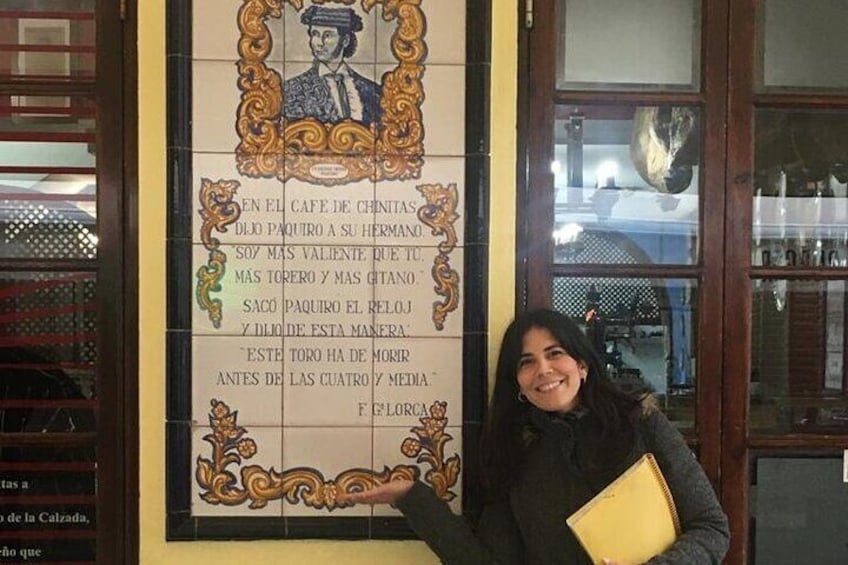 EN EL CAFÉ DE CHINITAS
DIJO PAQUIRO A SU HERMANO:
"SOY MÁS VALIENTE QUE TÚ,
MÁS TORERO Y MAS GITANO."
SACÓ PAQUIRO EL RELOJ
Y DIJO DE ESTA MANERA:
"ESTE TORO HA DE MORIR
ANTES DE LAS CUATRO Y MEDIA."
F. Gª LORCA
tas a
o de la Calzada,
eño que